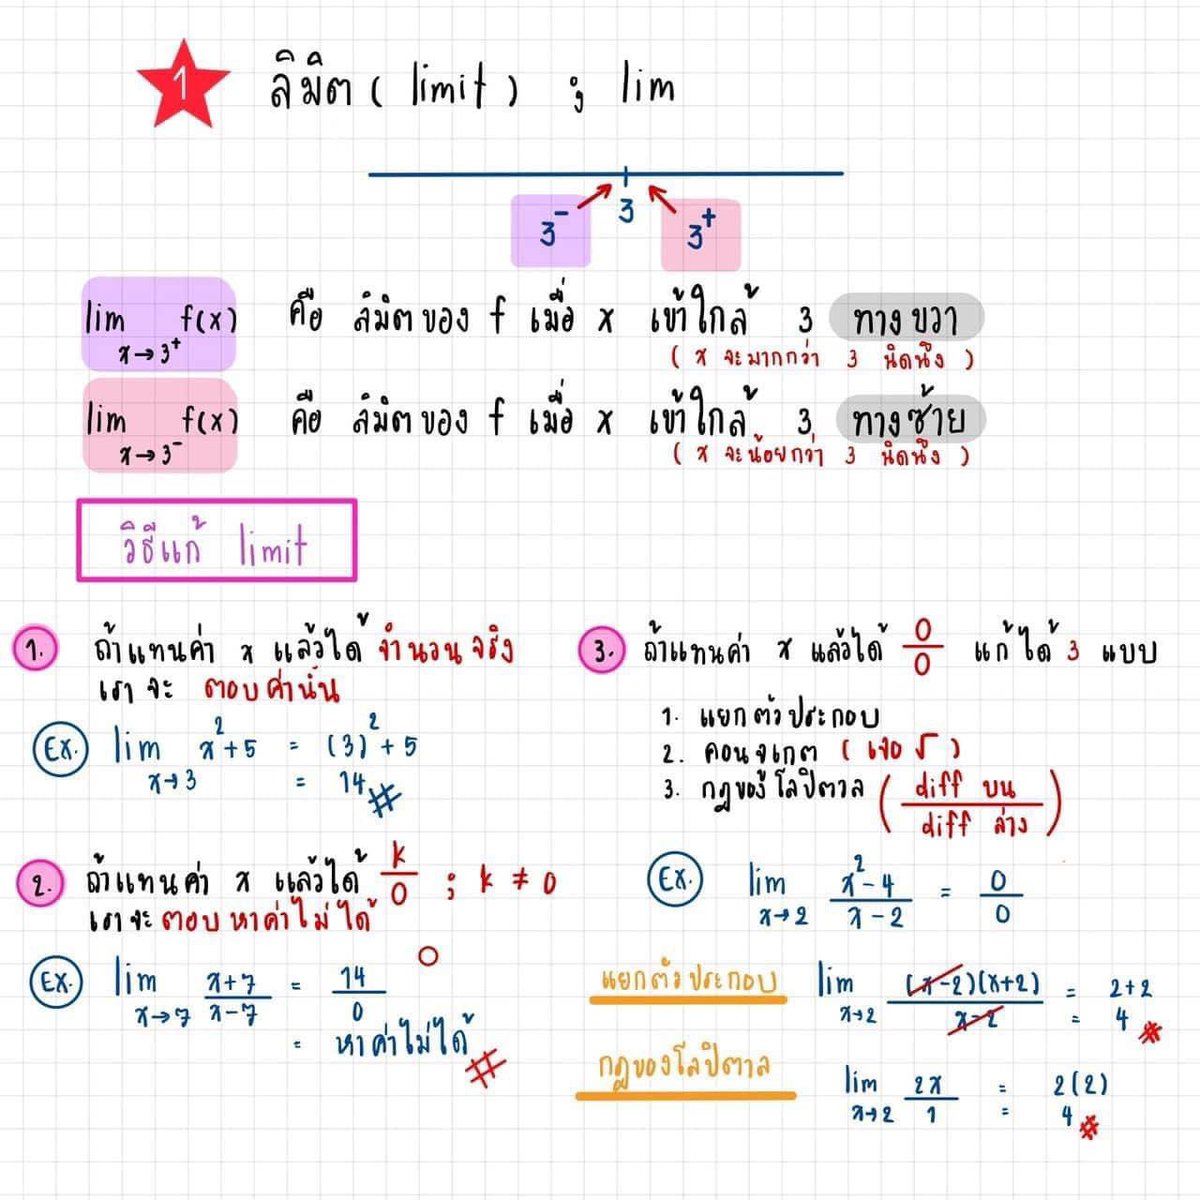 1 ลิมิต ( limit ) ; lim
3
3⁻ 3⁺
lim f(x) คือ ลิมิตของ f เมื่อ x เข้าใกล้ 3 ทางขวา
x→3⁺ ( x จะมากกว่า 3 นิดนึง )
lim f(x) คือ ลิมิตของ f เมื่อ x เข้าใกล้ 3 ทางซ้าย
x→3⁻ ( x จะน้อยกว่า 3 นิดนึง )
วิธีแก้ limit
1. ถ้าแทนค่า x แล้วได้ จำนวนจริง
เราจะ ตอบค่านั้น
Ex. lim x²+5 = (3)²+5
x→3 = 14 #
2. ถ้าแทนค่า x แล้วได้ k/0 ; k ≠ 0
เราจะ ตอบหาค่าไม่ได้
Ex. lim x→7 (x+7)/(x-7) = 14/0
= หาค่าไม่ได้ #
3. ถ้าแทนค่า x แล้วได้ 0/0 แก้ได้ 3 แบบ
1. แยกตัวประกอบ
2. คอนจูเกต ( เจอ √ )
3. กฎของโลปิตาล ( diff บน / diff ล่าง )
Ex. lim x→2 (x²-4)/(x-2) = 0/0
แยกตัวประกอบ lim x→2 (x-2)(x+2)/(x-2) = 2+2
= 4 #
กฎของโลปิตาล lim x→2 2x/1 = 2(2)
= 4 #